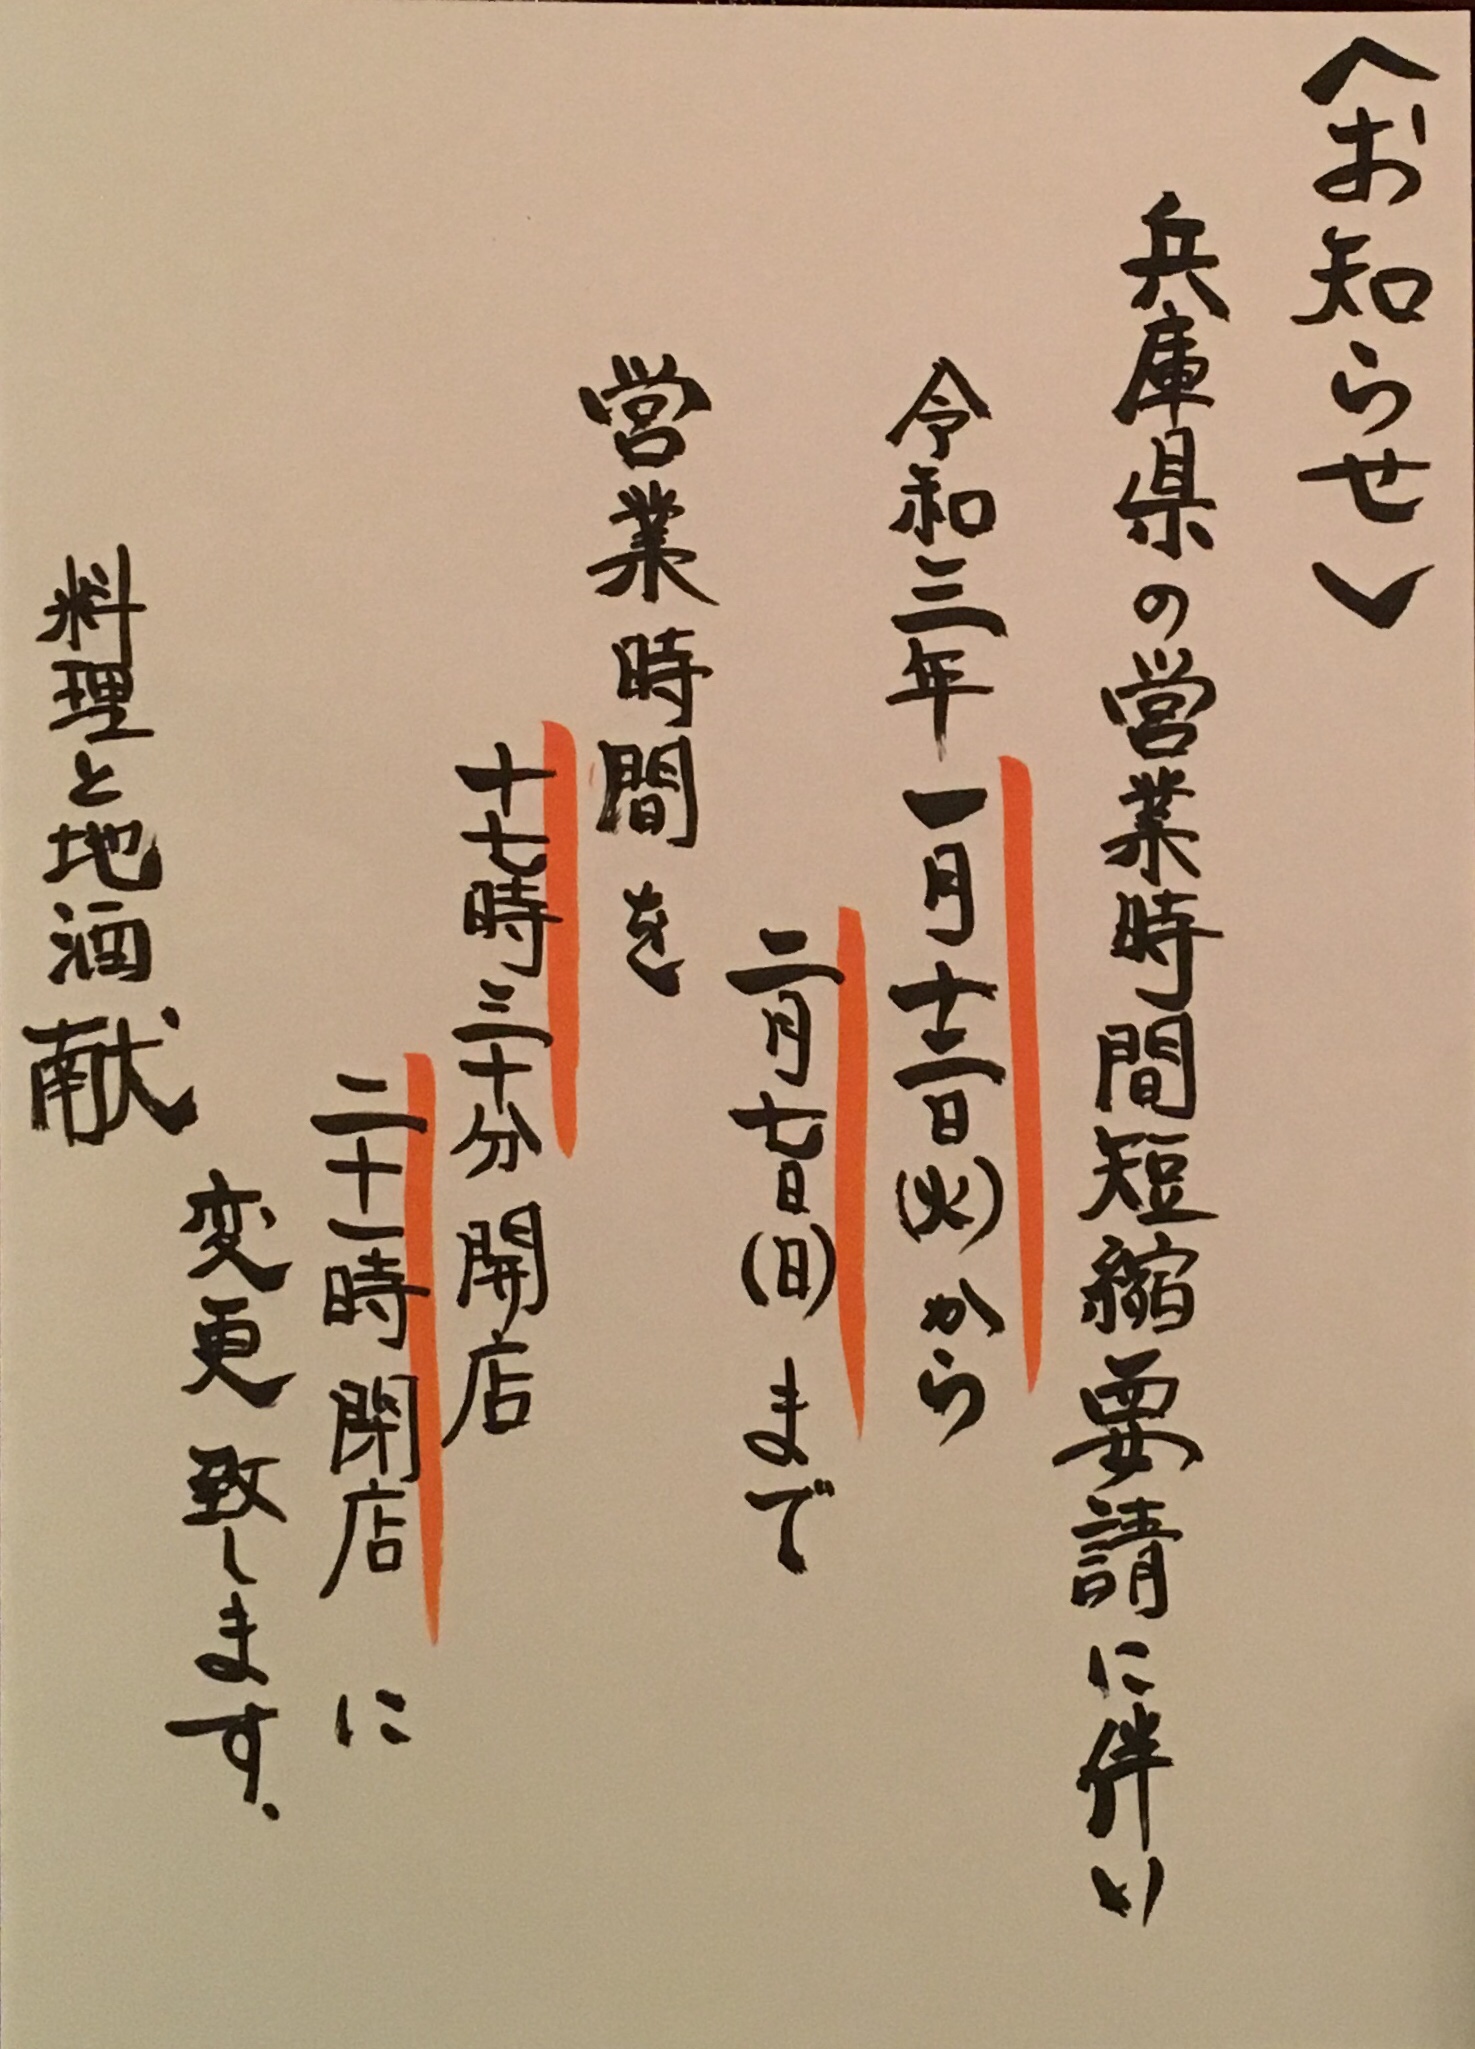 〈お知らせ〉
兵庫県の営業時間短縮要請に伴い
令和三年一月十二日(火)から
二月七日(日)まで
営業時間を
十七時三十分開店
二十一時閉店に
変更致します.
料理と地酒献